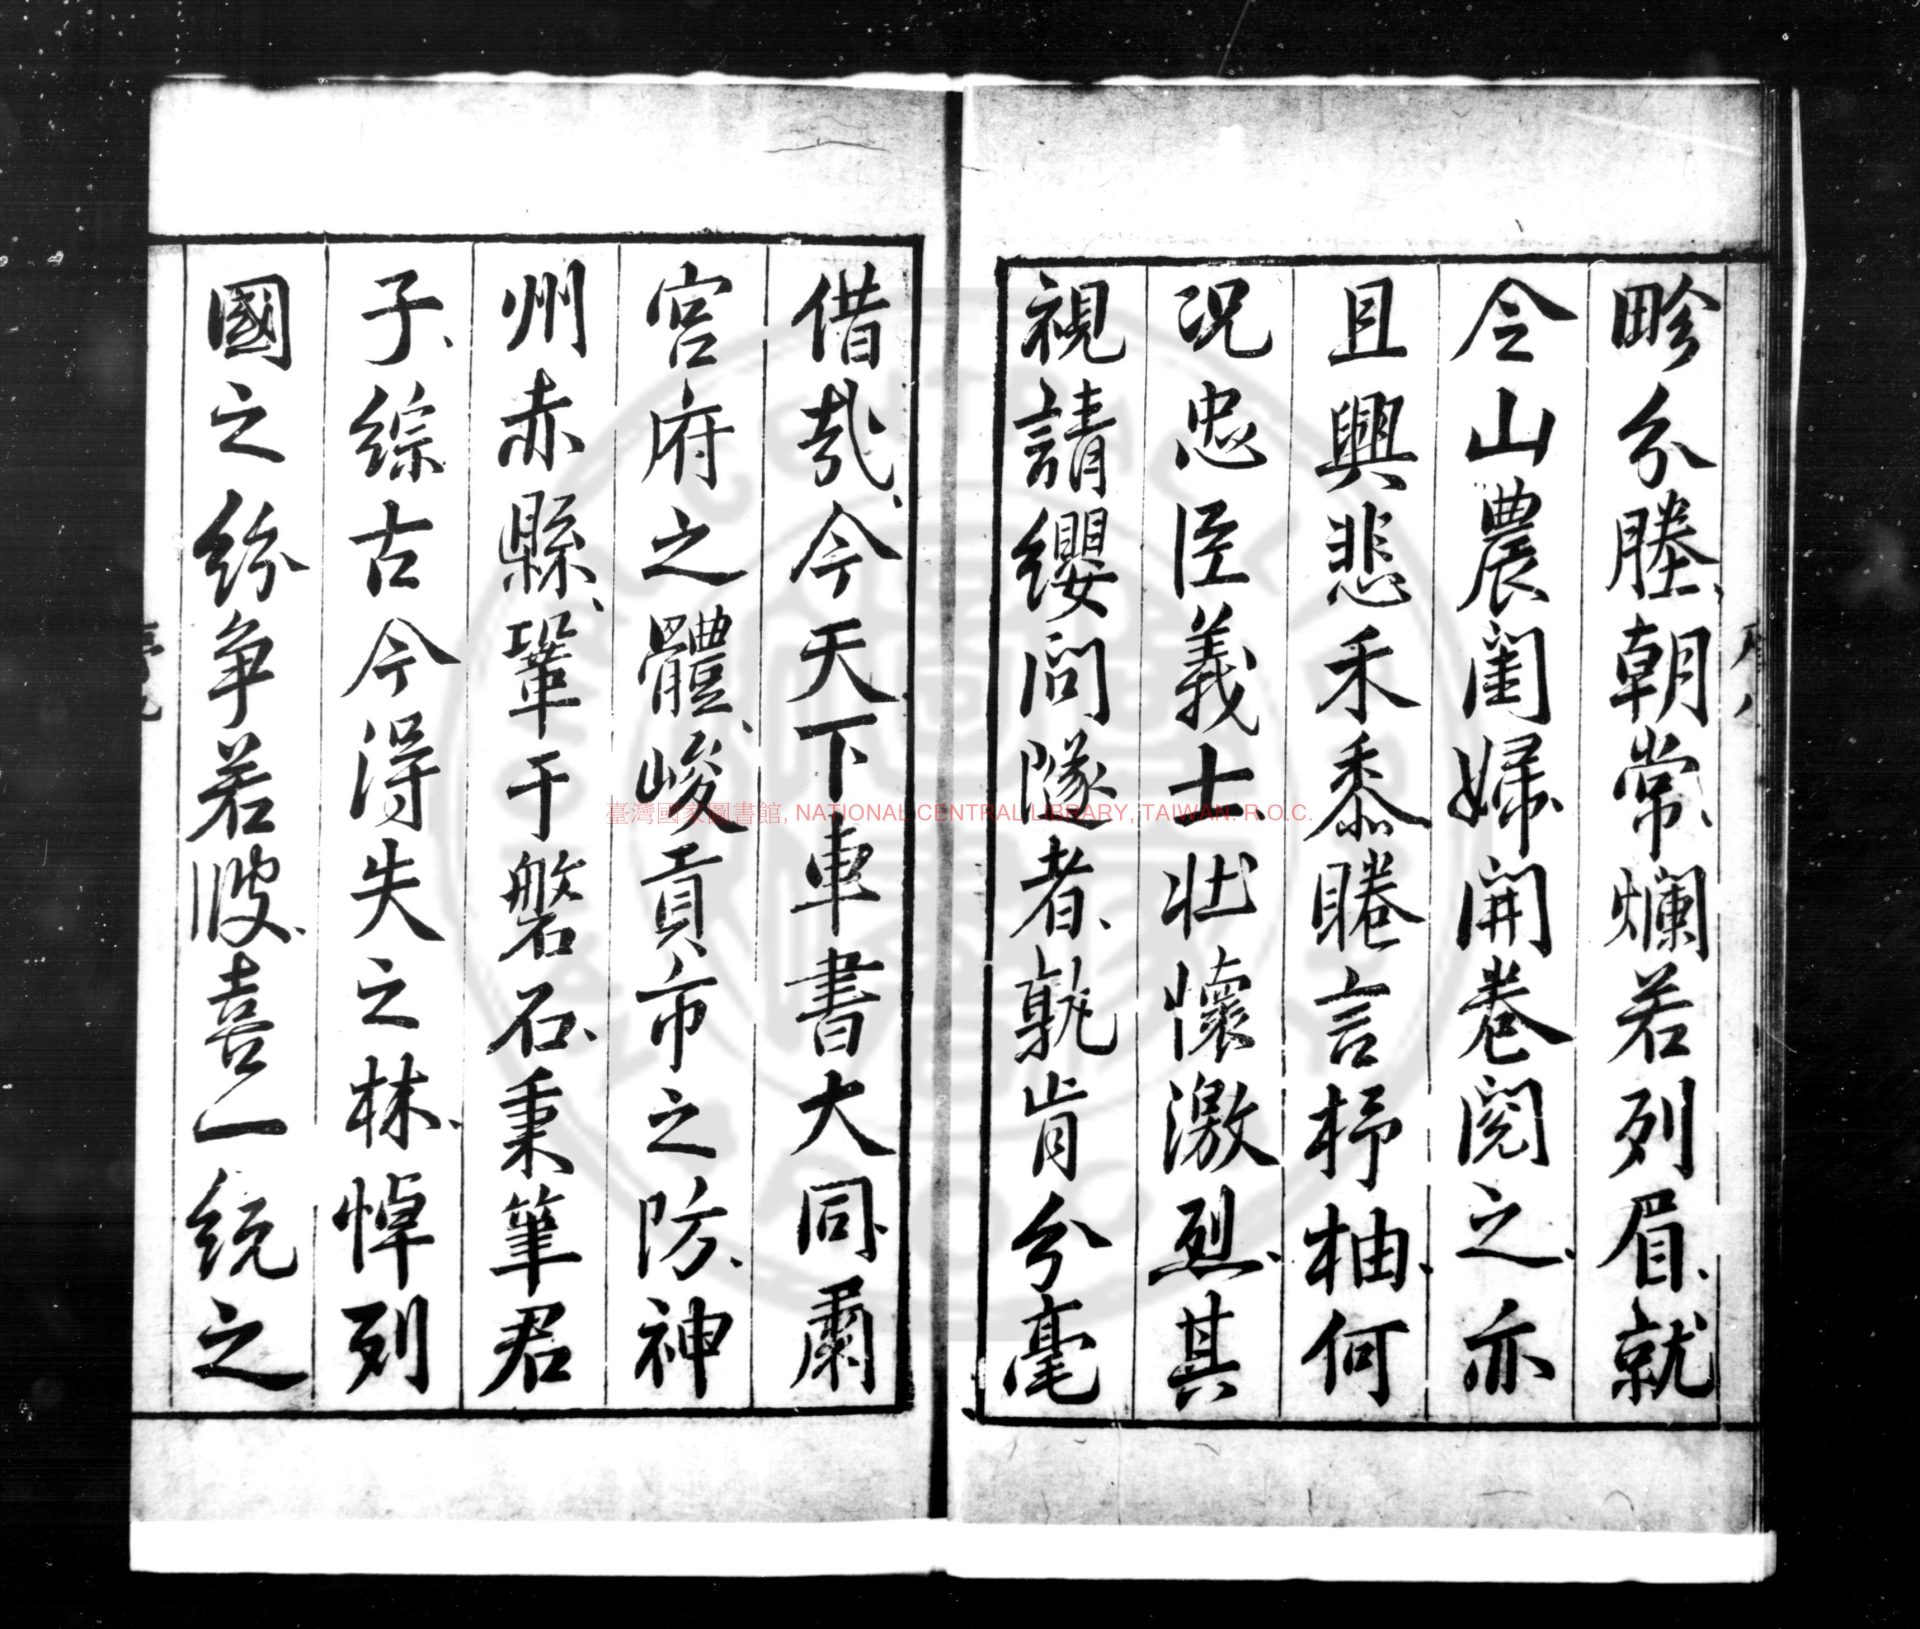 畛分塍朝常爛若列眉就
令山農閨婦開卷閱之亦
且興悲禾黍睠言杼柚何
况忠臣義士壯懷激烈其
視請纓問隧者孰肯分毫
借哉今天下車書大同肅
宮府之體峻貢市之防神
州赤縣鞏于磐石秉筆君
子綜古今得失之林悼列
國之紛争若彼喜一統之
臺灣國家圖書館, NATIONAL CENTRAL LIBRARY, TAIWAN. R.O.C.